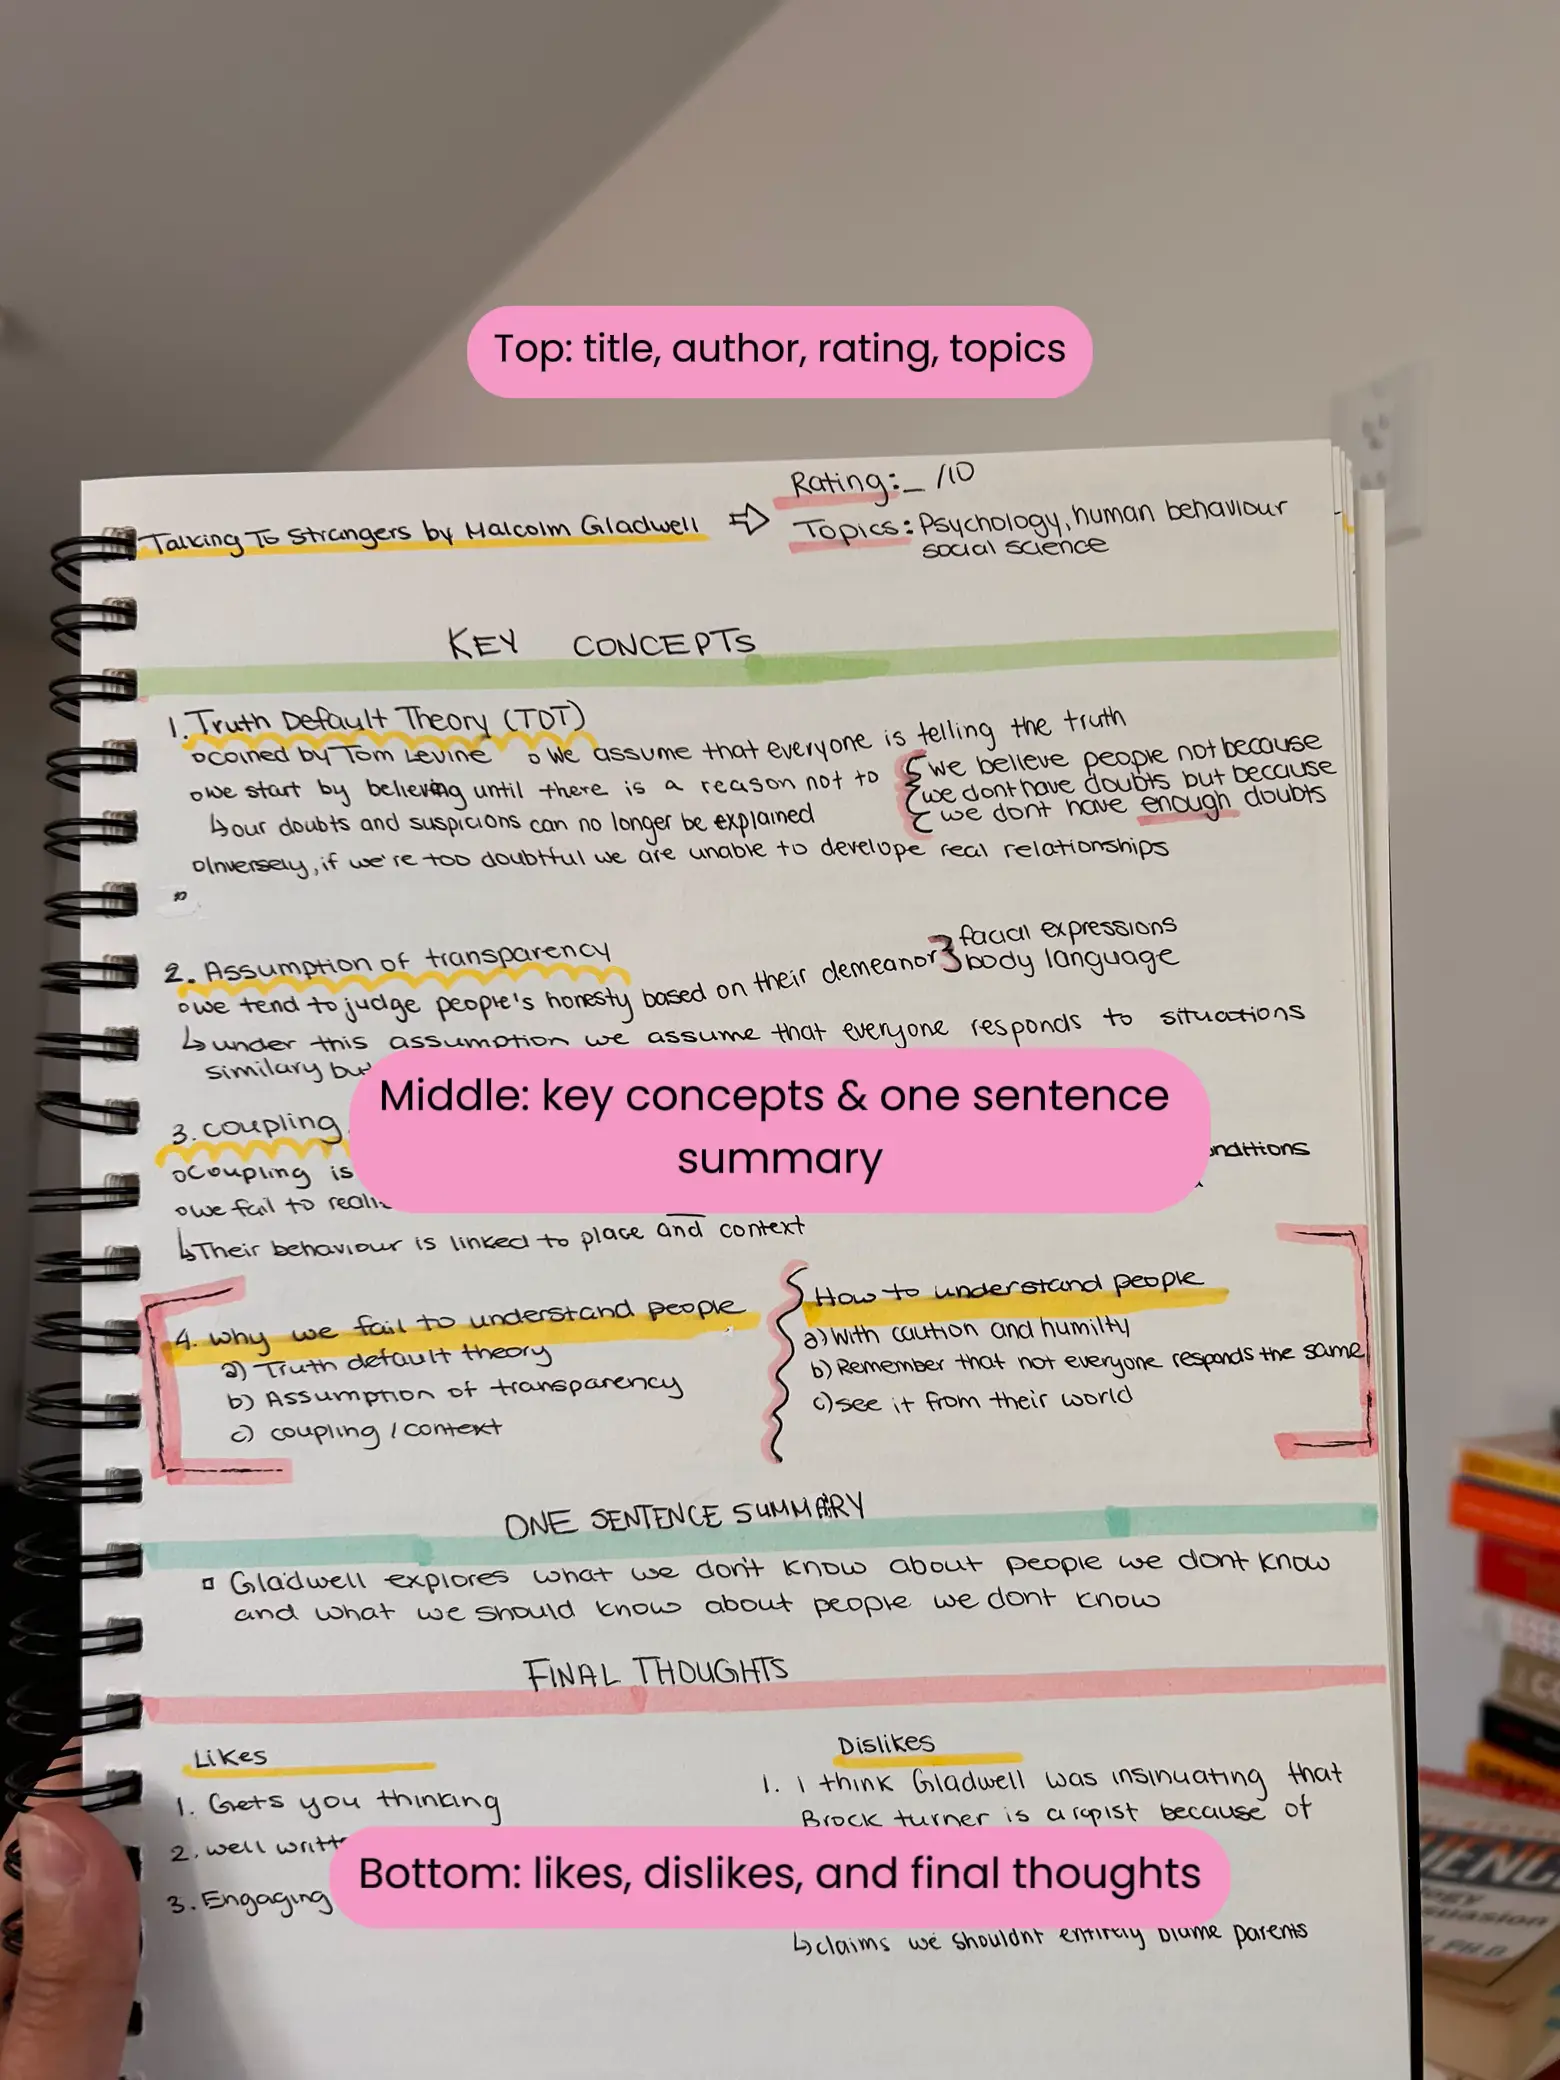 Top: title, author, rating, topics
Talking To Strangers by Malcolm Gladwell
Rating: _ /10
Topics: Psychology, human behaviour
social science
KEY CONCEPTS
1. Truth Default Theory (TDT)
coined by Tom Levine
we assume that everyone is telling the truth
we start by believing until there is a reason not to
↳our doubts and suspicions can no longer be explained
we believe people not because
we dont have doubts but because
we dont have enough doubts
Inversely, if we're too doubtful we are unable to develope real relationships
2. Assumption of transparency
we tend to judge people's honesty based on their demeanor
facial expressions
body language
↳under this assumption we assume that everyone responds to situations
similary but
Middle: key concepts & one sentence
summary
3. coupling
Coupling is
we fail to
↳Their behaviour is linked to place and context
4. why we fail to understand people
a) Truth default theory
b) Assumption of transparency
c) coupling / context
How to understand people
a) With caution and humilty
b) Remember that not everyone responds the same
c) see it from their world
ONE SENTENCE SUMMARY
Gladwell explores what we don't know about people we dont know
and what we should know about people we dont know
FINAL THOUGHTS
Likes
1. Gets you thinking
2. well
3. Engaging
Dislikes
1. I think Gladwell was insinuating that
Brock turner is a rapist because of
Bottom: likes, dislikes, and final thoughts
↳claims we shouldnt entirely blame parents